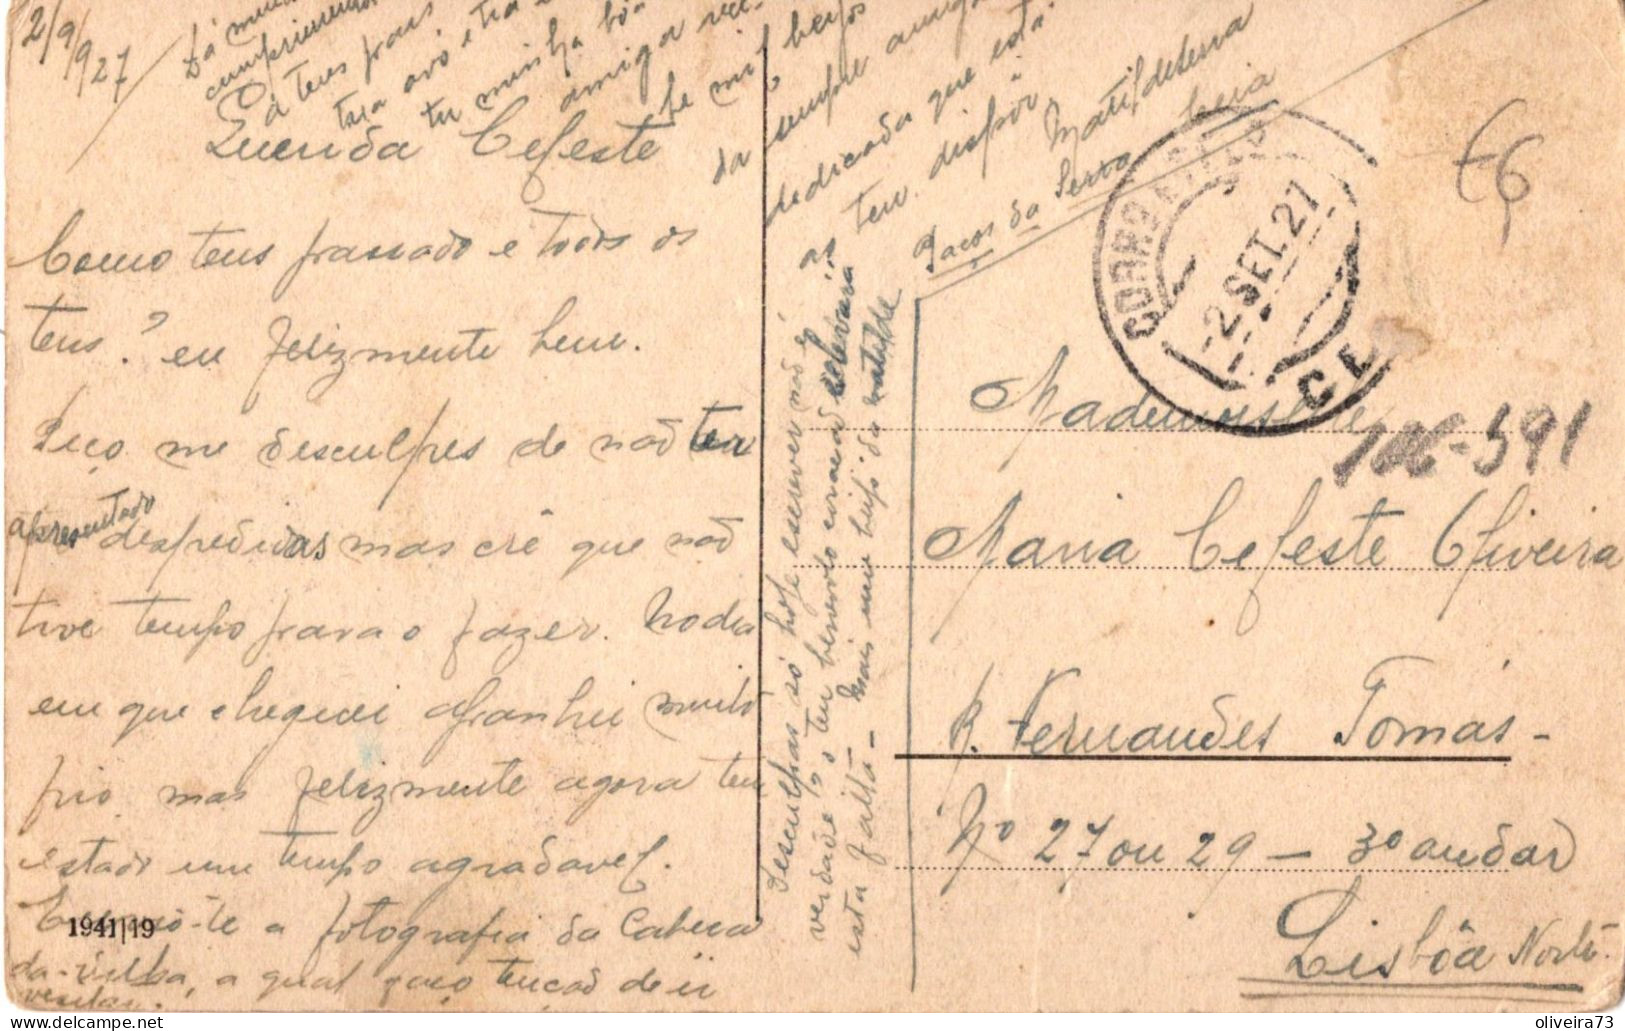 2/9/927
Querida Celeste
Como tens passado e todos os
teus? eu felizmente bem.
Peço me desculpes de não ter
apresentado despedidas mas crê que não
tive tempo para o fazer. No dia
em que cheguei apanhei muito
frio, mas felizmente agora tem
estado um tempo agradavel.
a fotografia da Cabeça
da-velha, a qual faço tenção de ir
vesitar.
Dá
cumprimentos
a teus pais
tua avó e tia
tu minha bôa
amiga
mil beijos
da sempre amiga
dedicada que está
ao teu dispôr
Matilde
Paços da Serra
Desculpas só hoje escrever não é
verdade? o teu benevolo coração relevará
esta falta - Mais um beijo da Matilde
CORREIO
2 SET. 27
Mademoiselle
Maria Celeste Oliveira
R. Fernandes Tomás -
Nº 27 ou 29 - 3º andar
Lisbôa Norte
591
€6
1941|19
oliveira73